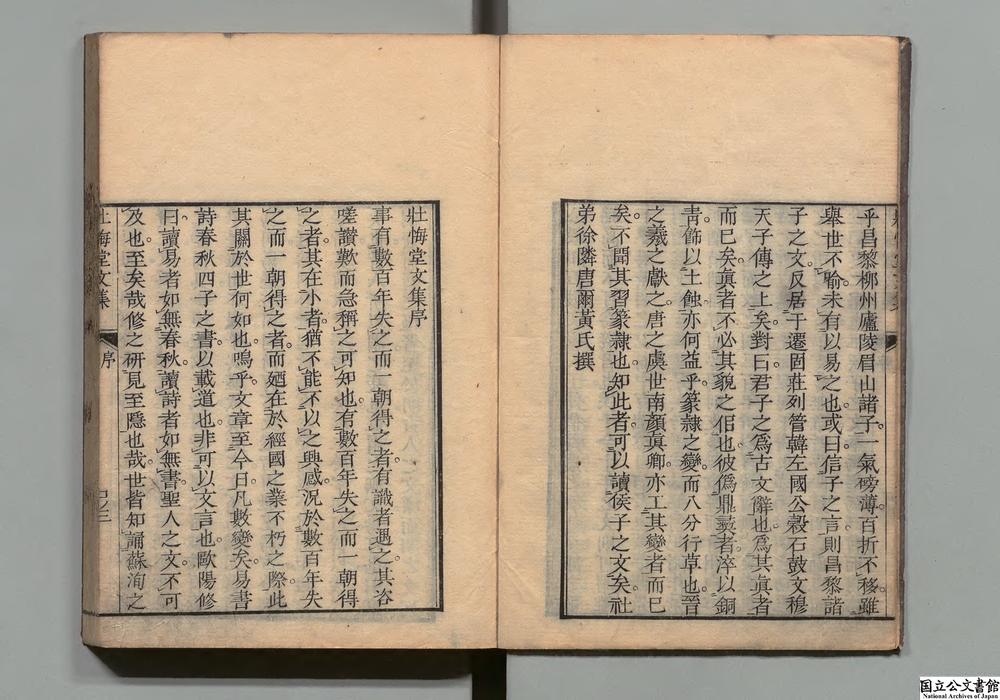 乎昌黎柳州廬陵眉山諸子一氣磅薄百折不移雖
舉世不喻未有以易之也或曰信子之言則昌黎諸
子之文反居于遷固莊列管韓左國公穀石鼓文穆
天子傳之上矣對曰君子之爲古文辭也爲其眞者
而已矣眞者不必其貌之佀也彼僞鼎彝者淬以銅
靑飾以土蝕亦何益乎篆隸之變而八分行草也晉
之羲之獻之唐之虞世南顔眞卿亦工其變者而已
矣不聞其習篆隸也知此者可以讀侯子之文矣社
弟徐隣唐爾黃氏撰
壯悔堂文集序
事有數百年失之而一朝得之者有識者遇之其咨
嗟讃歎而急稱之可知也有數百年失之而一朝得
之者其在小者猶不能不以之興感況於數百年失
之而一朝得之者而廼在於經國之業不朽之際此
其關於世何如也嗚乎文章至今日凡數變矣易書
詩春秋四子之書以載道也非可以文言也歐陽修
曰讀易者如無春秋讀詩者如無書聖人之文不可
及也至矣哉修之硏見至隱也哉世皆知誦蘇洵之
壯悔堂文集
序
國立公文書館
National Archives of Japan